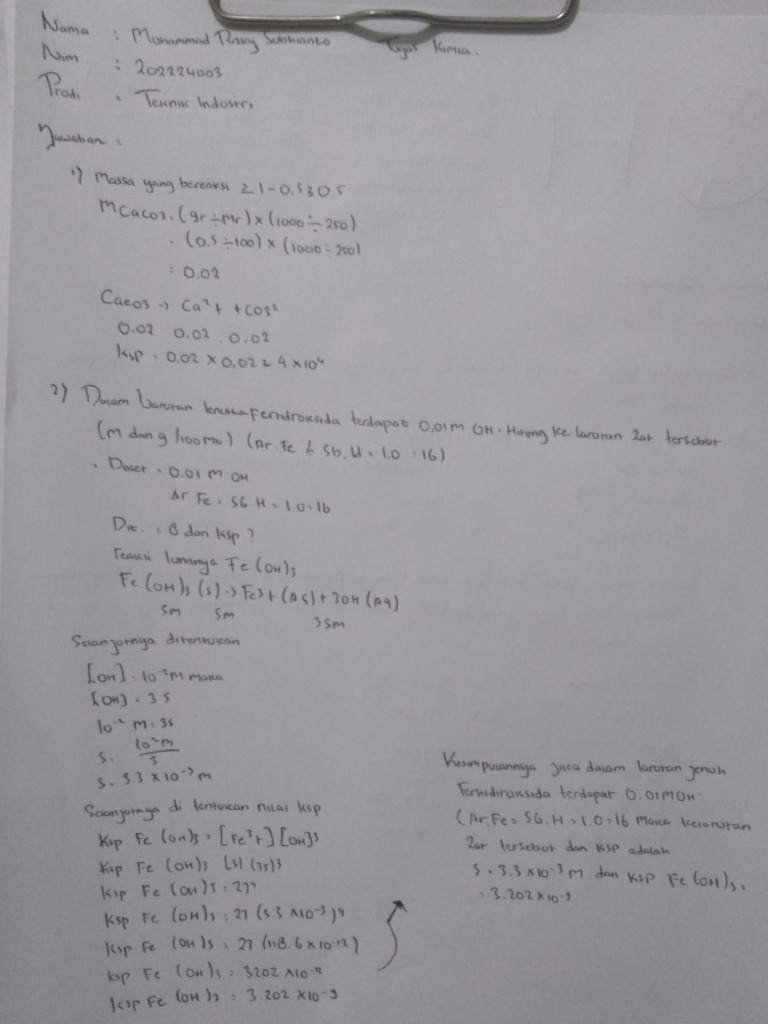 Nama : Muhammad Risky Subhianto Tugas Kimia.
Nim : 202224003
Prodi . Teknik Industri
Jawaban .
1) Massa yang bereaksi = 1 - 0.5 = 0.5
M CaCO3 . (gr ÷ Mr) × (1000 ÷ 250)
. (0.5 ÷ 100) × (1000 ÷ 250)
= 0.02
CaCO3 → Ca²+ + CO3²
0.02 0.02 . 0.02
Ksp = 0.02 × 0.02 = 4 × 10⁴
2) Dalam larutan terdapat 0,01 M OH. Hitung Ke larutan Zat tersebut
(M dan g/100 mL) (Ar. Fe = 56, H = 1.0 = 16)
. Diket = 0.01 M OH
Ar Fe = 56 H = 1.0 = 16
Dit. = S dan Ksp ?
reaksi Fe (OH)3
Fe (OH)3 (s) → Fe3+ (Aq) + 3OH (Aq)
Sm Sm 3Sm
Selanjutnya ditentukan
[OH] = 10⁻²M maka
[OH] = 3S
10⁻² M = 3S
S = 10²M / 3
S = 3.3 × 10⁻³ M
Selanjutnya di tentukan nilai Ksp
Ksp Fe (OH)3 = [Fe³+] [OH]³
Ksp Fe (OH)3 [S] (3S)3
Ksp Fe (OH)3 = 27⁴
Ksp Fe (OH)3 = 27 (3.3 × 10⁻³)4
Ksp Fe (OH)3 = 27 (118.6 × 10⁻¹²)
Ksp Fe (OH)3 = 3202 × 10⁻¹²
Ksp Fe (OH)3 = 3.202 × 10⁻⁹
Kesimpulannya Jika dalam larutan jenuh
Ferihidroksida terdapat 0.01 M OH-
(Ar. Fe = 56. H = 1.0 = 16 Maka Kelarutan
Zat tersebut dan Ksp adalah
S = 3.3 × 10⁻³ M dan Ksp Fe(OH)3 =
= 3.202 × 10⁻⁹